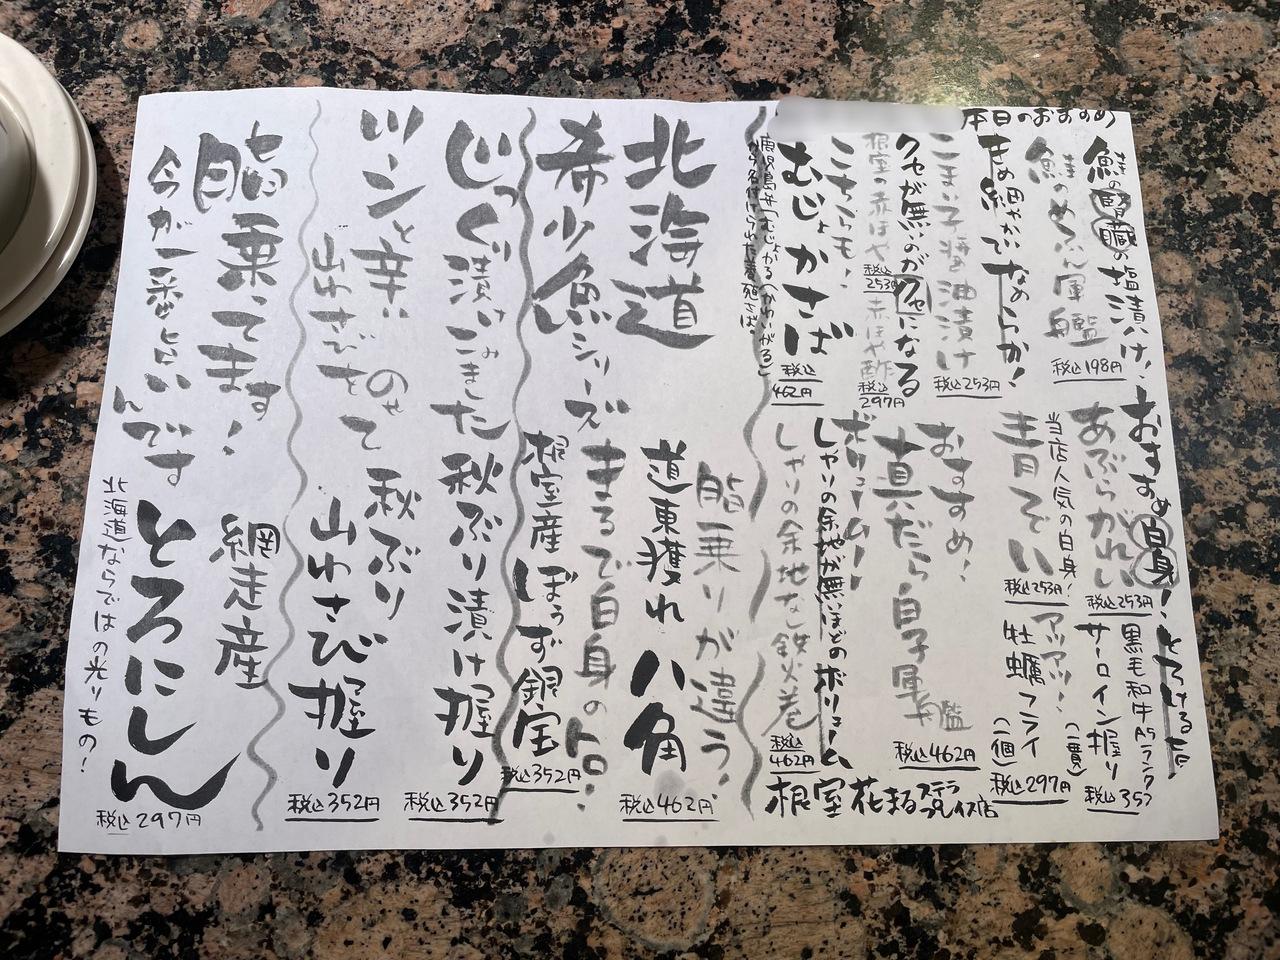 本日のおすすめ
鮭の腎臓の塩漬け！
鮭のめふん軍艦
税込198円
きめ細かいなめらか！
こまい子醤油漬け
税込253円
クセが無いのがクセになる
根室の赤ほや
税込253円
赤ほや酢
税込297円
こちらも！
むじょかさば
税込462円
鹿児島弁「むじょがる（かわいがる）」
から名付けられた養殖さば。
おすすめ白身！とろけるた
あぶらがれい
税込253円
当店人気の白身！
青ぞい
税込253円
黒毛和牛A5ランク
サーロイン握り
（一貫）
税込35
アツアツ！
牡蠣フライ
（一個）
税込297円
おすすめ！
真だら白子軍艦
税込462円
ボリューム！
しゃりの余地が無いほどのボリューム
しゃりの余地なし鉄火巻
税込462円
根室花まるステラプレイス店
北海道
希少魚シリーズ
脂乗りが違う！
道東獲れ八角
税込462円
まるで白身のトロ！
根室産ぼうず銀宝
税込352円
じっくり漬けこみました
秋ぶり漬け握り
税込352円
ツーンと辛い
山わさびをのせて
秋ぶり
山わさび握り
税込352円
脂乗ってます！
今が一番占いんです
網走産
とろにしん
北海道ならではの光りもの！
税込297円